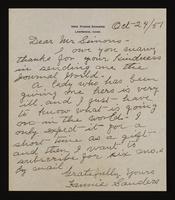 Oct-29/51
Dear Mr. Simons -
I owe you many
thanks for your kindness
in sending me the
Journal World.
A lady who has been
giving me hers is very
ill, and I just have
to know what is going
on in the world! I
only expect it for a
short time as a gift -
and then I want to
subscribe for six mos.
by mail.
Gratefully Yours
Fannie Sanders